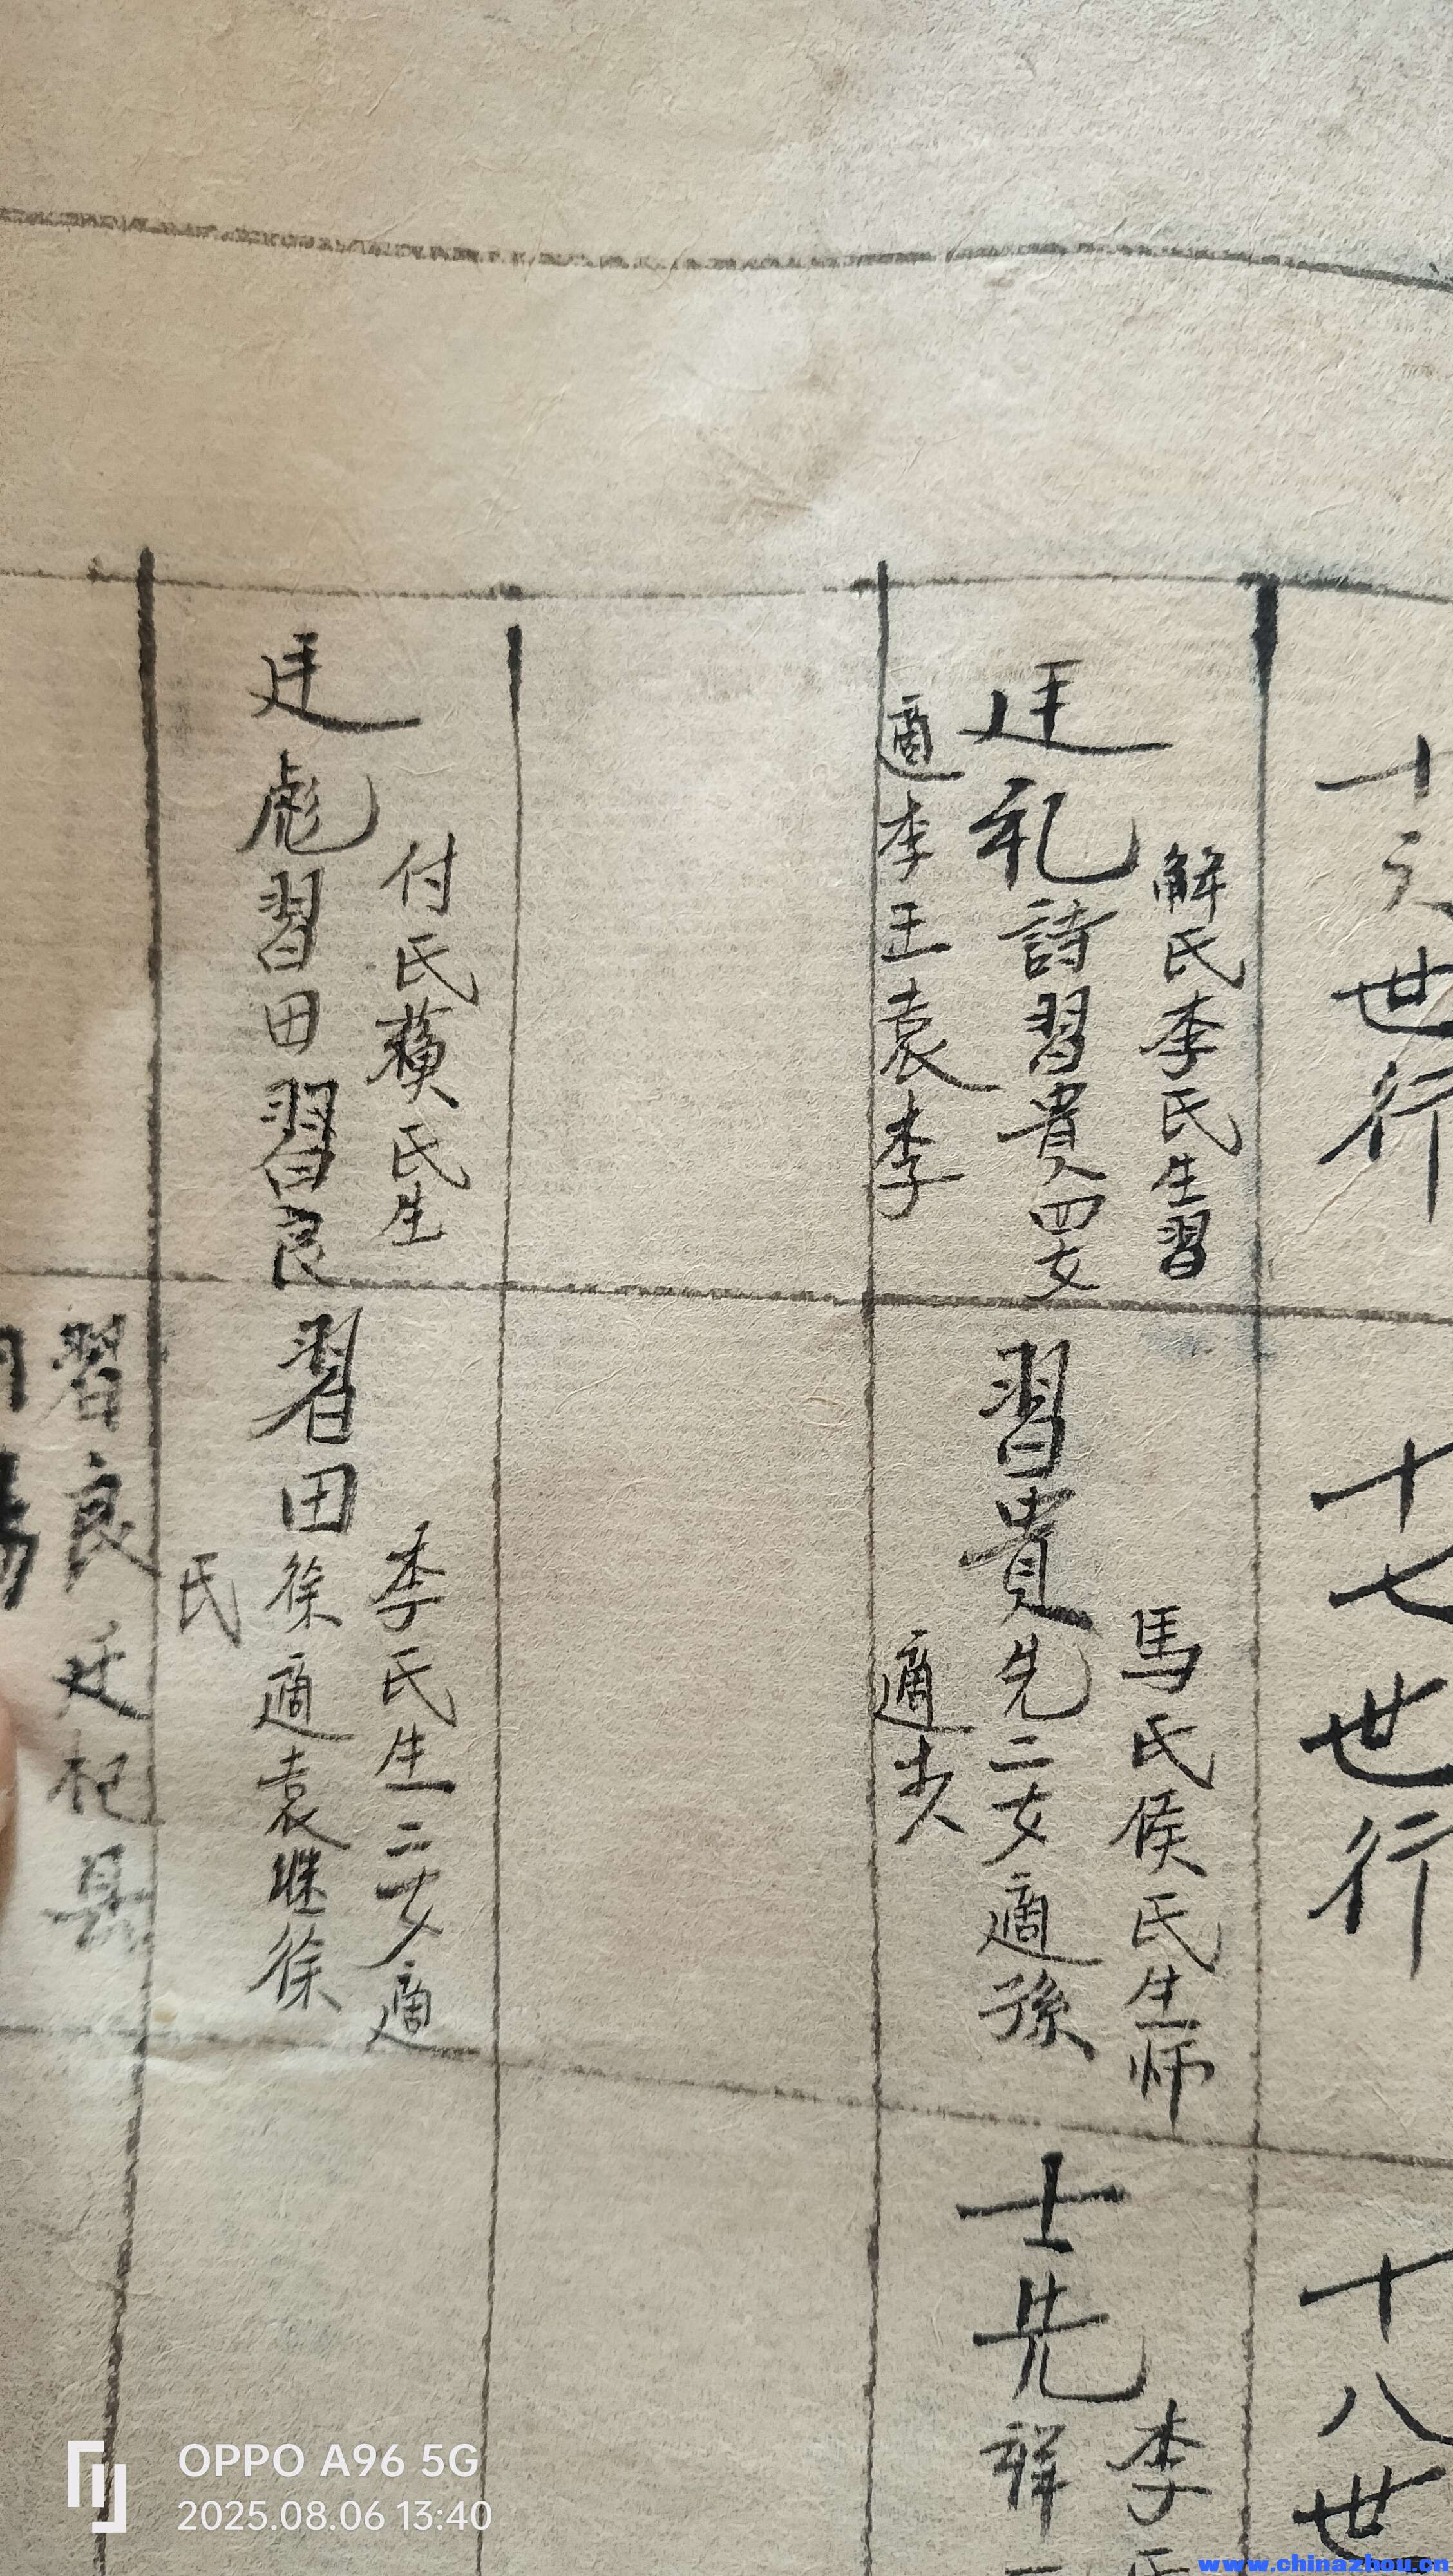 十六世行
解氏李氏生習
廷礼
詩習貴四女
適李王袁李
付氏蘋氏生
廷彪習田習良
十七世行
馬氏侯氏生师
習貴先二女適孫
適
李氏生二女適
習田徐適袁継徐
氏
習良迁杞县
十八世
李氏
士先祥
OPPO A96 5G
2025.08.06 13:40
www.chinazhou.cn